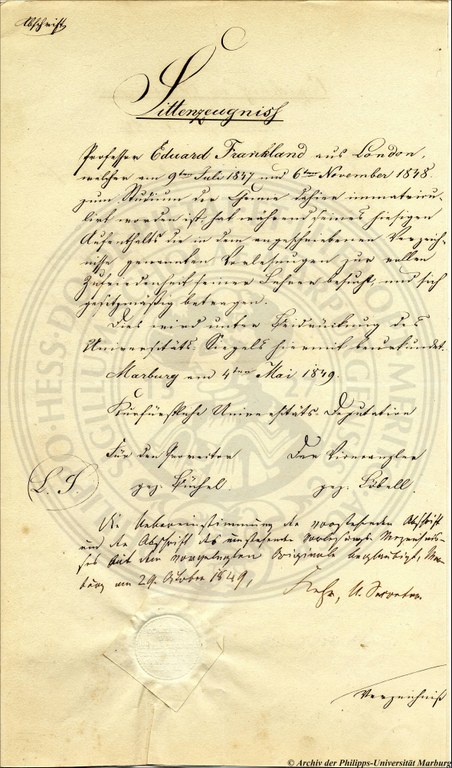 Abschrift
Sittenzeugniß
Professor Eduard Frankland aus London,
welcher am 9ten Juli 1847 und 6ten November 1848
zum Studium der Chemie dahier immatricu-
lirt worden ist, hat während seines hiesigen
Aufenthalts die in dem angeschriebenen Verzeich-
nisse genannten Vorlesungen zur vollen
Zufriedenheit seiner Lehrer besucht, und sich
gesetzmäßig betragen.
Dies wird unter Beidrückung des
Universitäts Siegels hiermit beurkundet.
Marburg am 4ten Mai 1849.
Kurfürstliche Universitäts Deputation
Für den Prorector Der Vicecanzler
L. S gez. Büchel gez. Löbell.
Die Uebereinstimmung der vorstehenden Abschrift
und der Abschrift des umstehenden Vorlesungs Verzeichnis-
ses mit dem vorgelegten Originale beglaubigt, Mar-
burg am 29. October 1849,
U. Secretar
Verzeichniß
© Archiv der Philipps-Universität Marburg